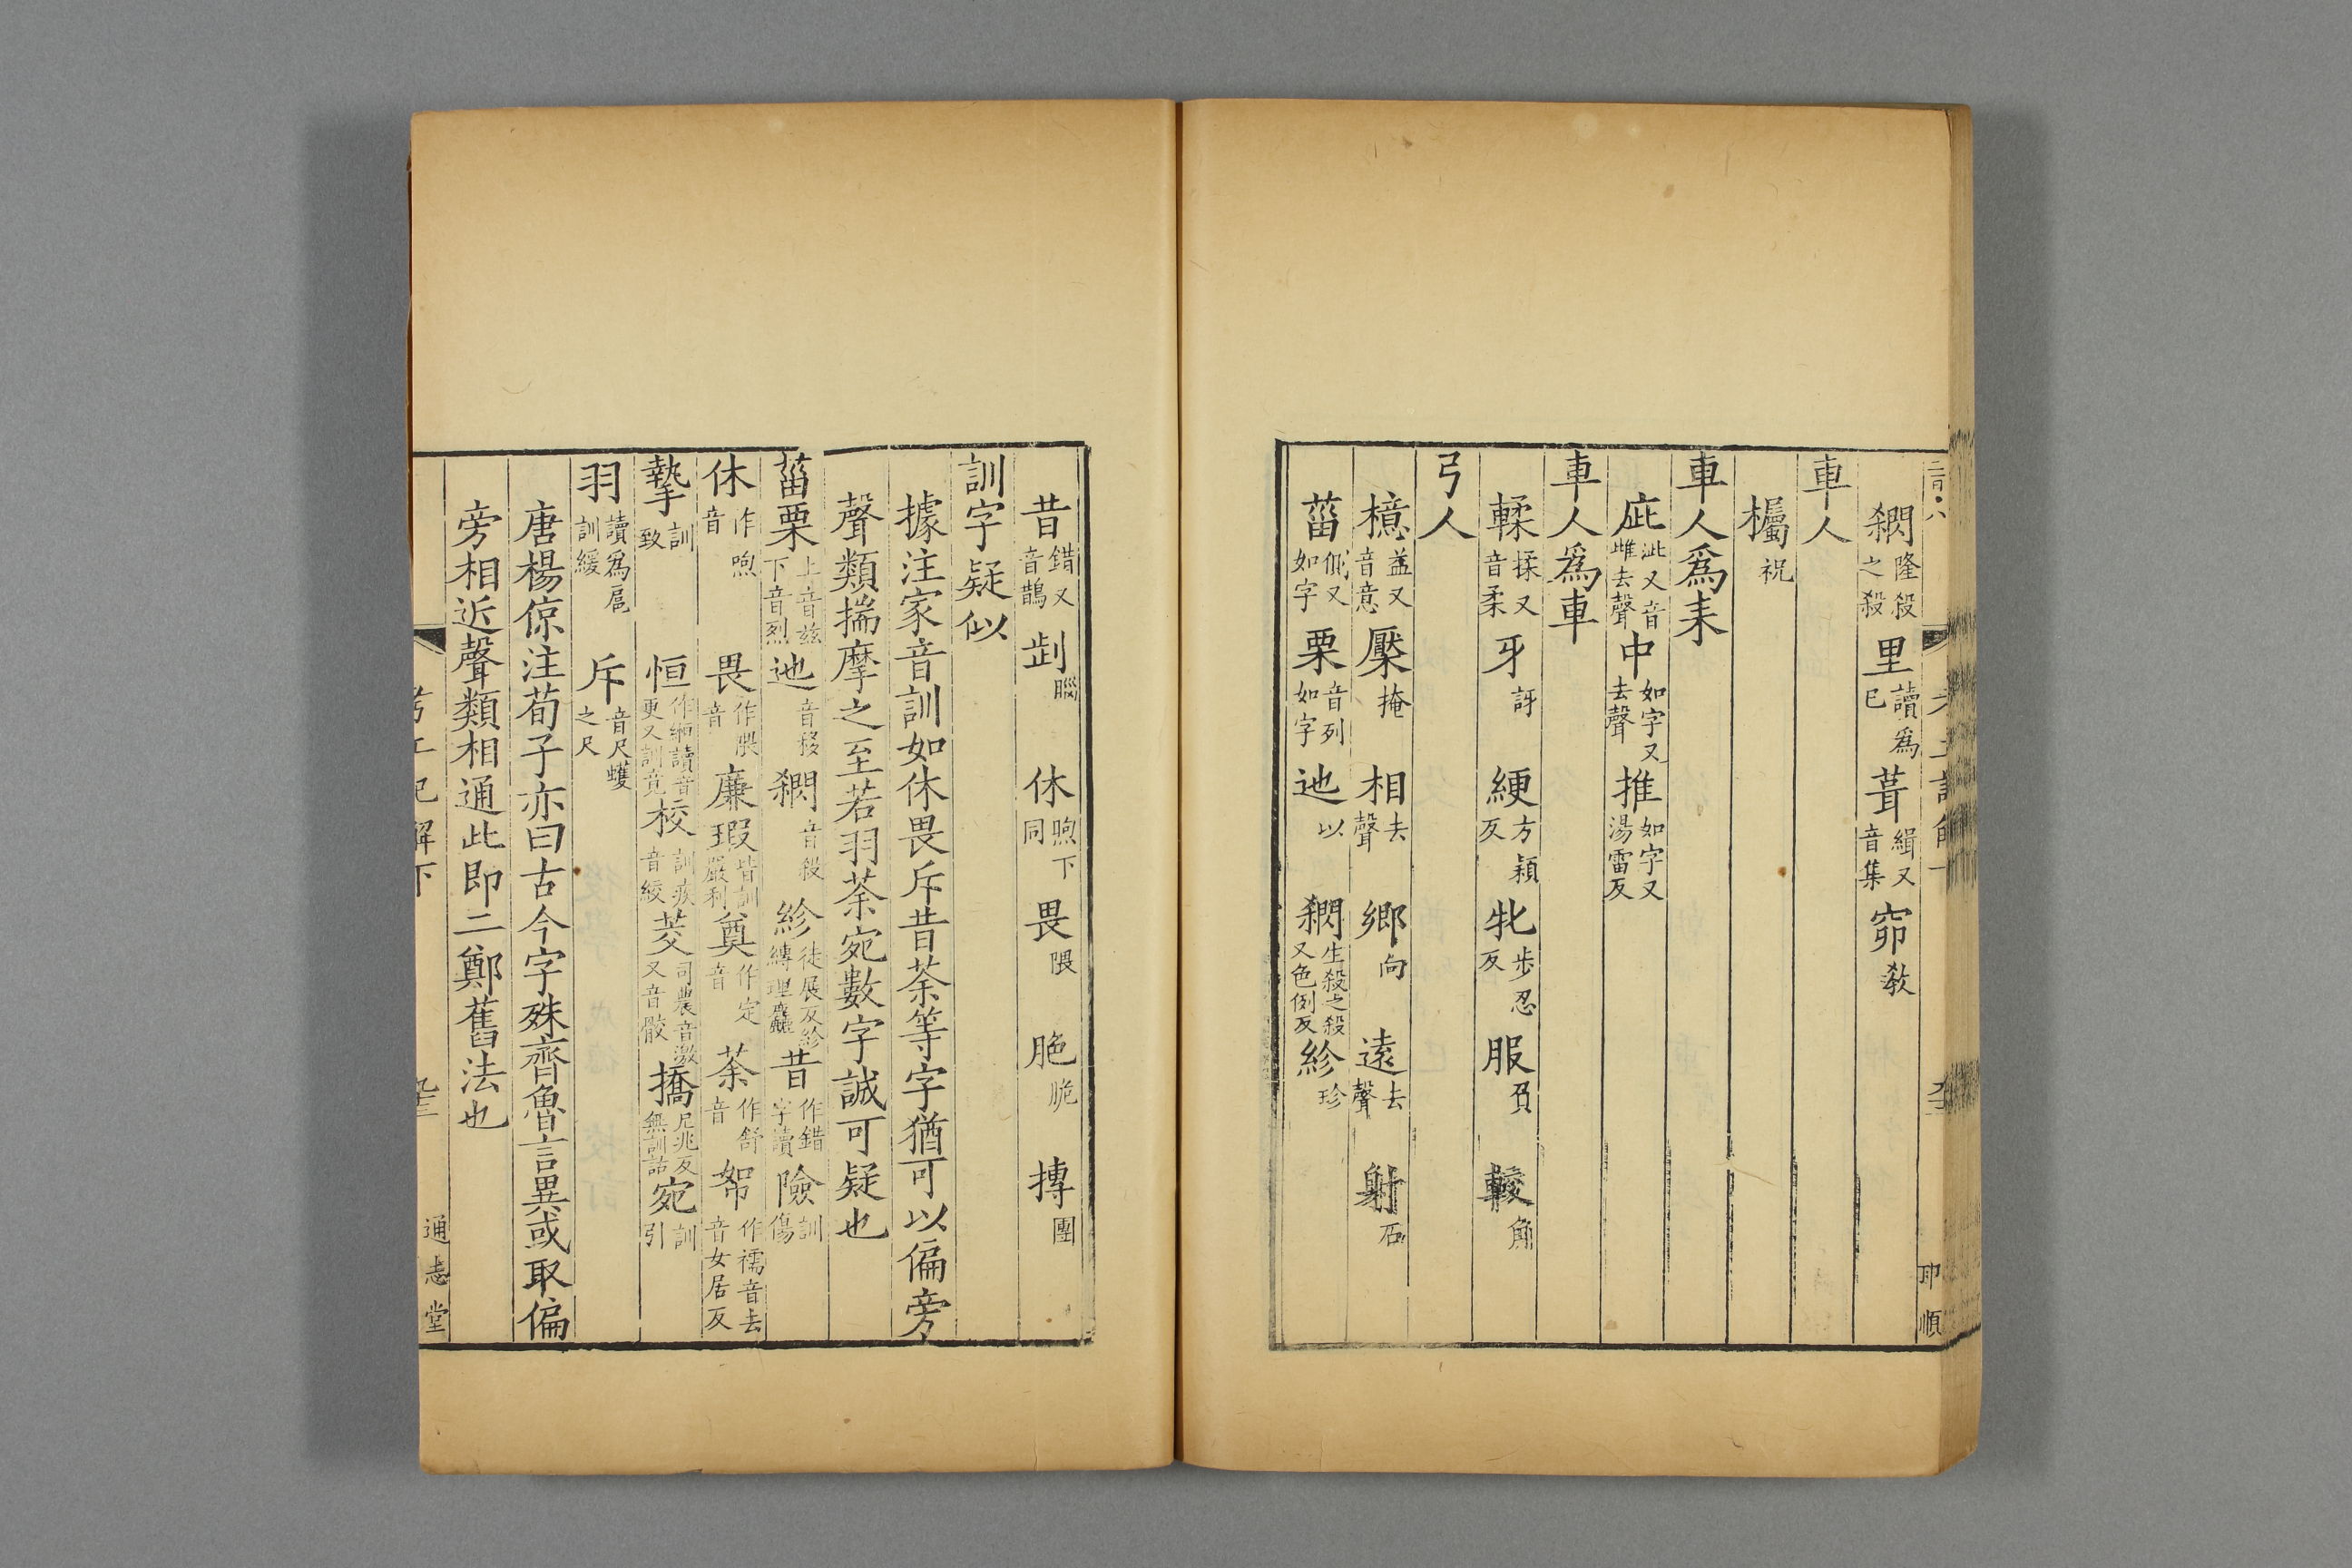 閷隆殺之殺 里讀爲巳 葺緝又音集 窌敎
車人
欘祝
車人爲耒
庛泚又音雌去聲 中如字又去聲 推如字又湯雷反
車人爲車
輮揉又音柔 牙訝 綆方穎反 牝步忍反 服負 較角
弓人
檍益又音意 檿掩 相去聲 鄕向 遠去聲 射石
菑側又如字 栗音列如字 迆以 閷生殺之殺又色例反 紾珍
昔錯又音鵲 㓽腦 休煦下同 畏隈 脃脆 摶團
訓字疑似
據注家音訓如休畏斥昔荼等字猶可以偏旁
聲類揣摩之至若羽荼宛數字誠可疑也
菑栗上音兹下音烈 迆音移 閷音殺 紾徒展反紾縳理麤 昔作錯字讀 險訓傷
休作煦音 畏作隈音 廉瑕皆訓嚴利 奠作定音 荼作舒音 帤作襦音去音女居反
摯訓致 恒作緪讀音更又訓竟 校訓疾音絞 茭司農音激又音骹 撟居兆反無訓詁 宛訓引
羽讀爲扈訓緩 斥音尺蠖之尺
唐楊倞注荀子亦曰古今字殊齊魯言異或取偏
旁相近聲類相通此即二鄭舊法也
通志堂